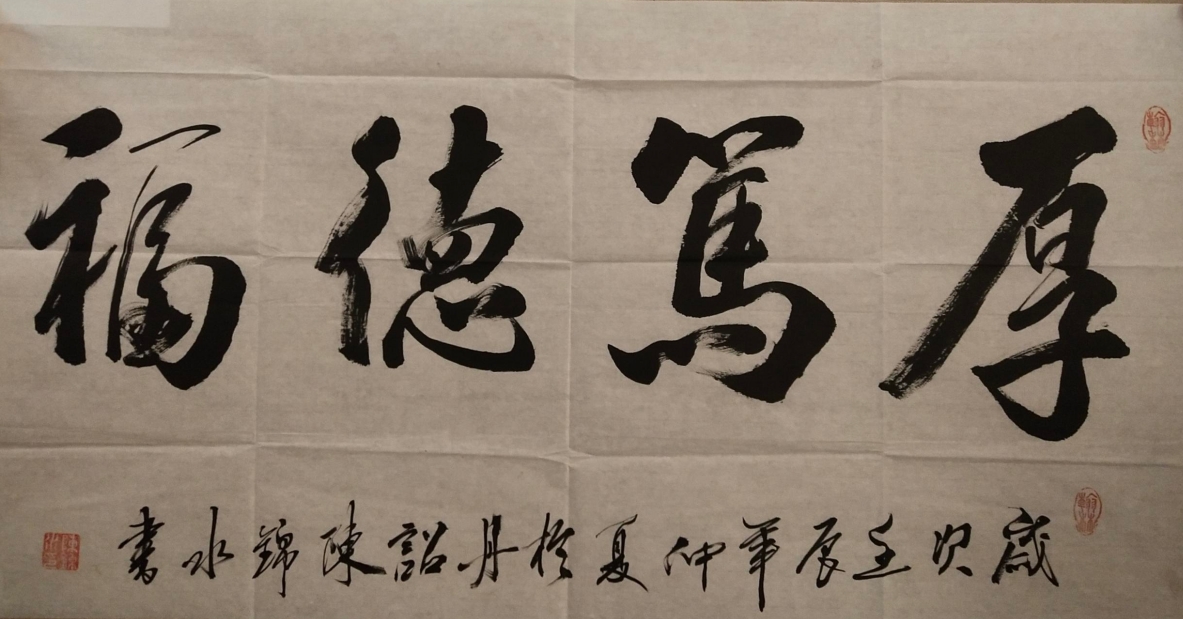 厚篤德福
歲次壬辰年仲夏於丹詔陳錦水書